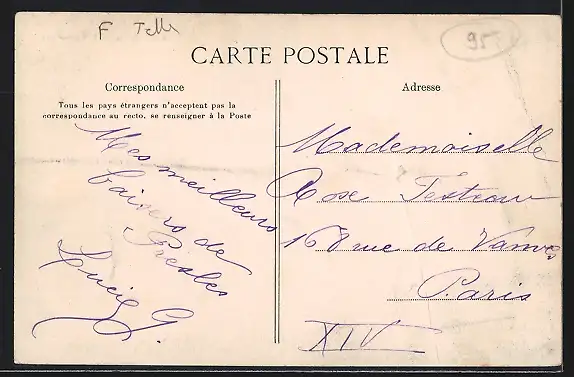 F Telle
95
CARTE POSTALE
Correspondance
Tous les pays étrangers n'acceptent pas la
correspondance au recto, se renseigner à la Poste
Mes meilleurs
baisers de
Presles
Lucie G.
Adresse
Mademoiselle
Rose Testeau
168 rue de Vanves
Paris
XIV